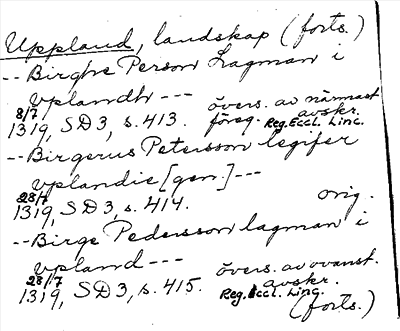 Uppland, landskap (forts.)
-- Birghe Person Lagman i
Vplandh ---
övers. av närmast
8/7
föreg. avskr.
1319, SD 3, s. 413. Reg. Eccl. Linc.
-- Birgerus Petersson legifer
Vplandie [gen.] ---
28/7
orig.
1319, SD 3, s. 414.
-- Birge Pedersson lagman i
Vpland ---
övers. av ovanst.
28/7
avskr.
1319, SD 3, s. 415. Reg. Eccl. Linc.
(forts.)